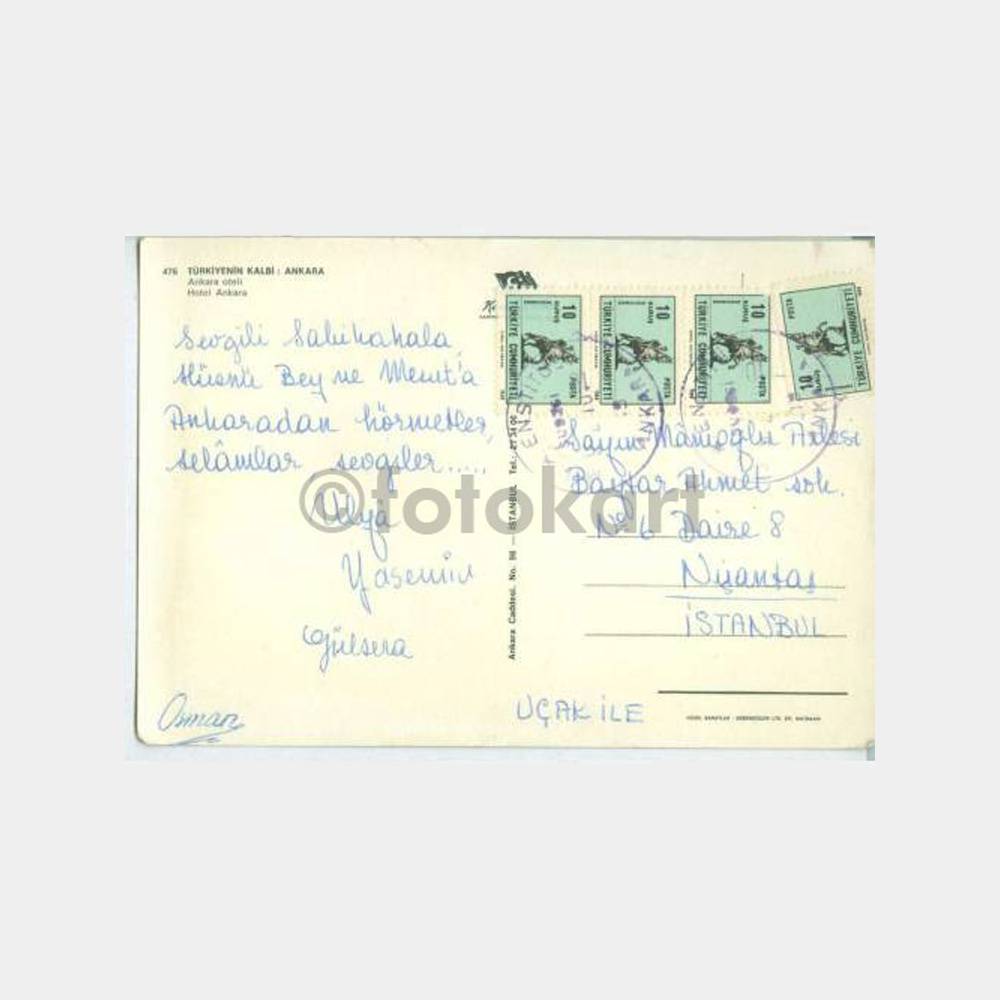 476 TÜRKİYENİN KALBİ : ANKARA
Ankara oteli
Hotel Ankara
Sevgili Sabihahala
Hüsnü Bey ve Mesut'a
Ankaradan hörmetler,
selâmlar sevgiler.....
Yasemin
Gülsera
Osman
Ankara Caddesi. No. 98 — İSTANBUL Tel.: 27 34 06
10 KURUŞ TÜRKİYE CUMHURİYETİ POSTA
10 KURUŞ TÜRKİYE CUMHURİYETİ POSTA
10 KURUŞ TÜRKİYE CUMHURİYETİ POSTA
10 KURUŞ TÜRKİYE CUMHURİYETİ POSTA
ANKARA
Sayın Mânioğlu Ailesi
Baytar Ahmet sok.
No 6 Daire 8
Nişantaş
İSTANBUL
UÇAK İLE
©fotokart